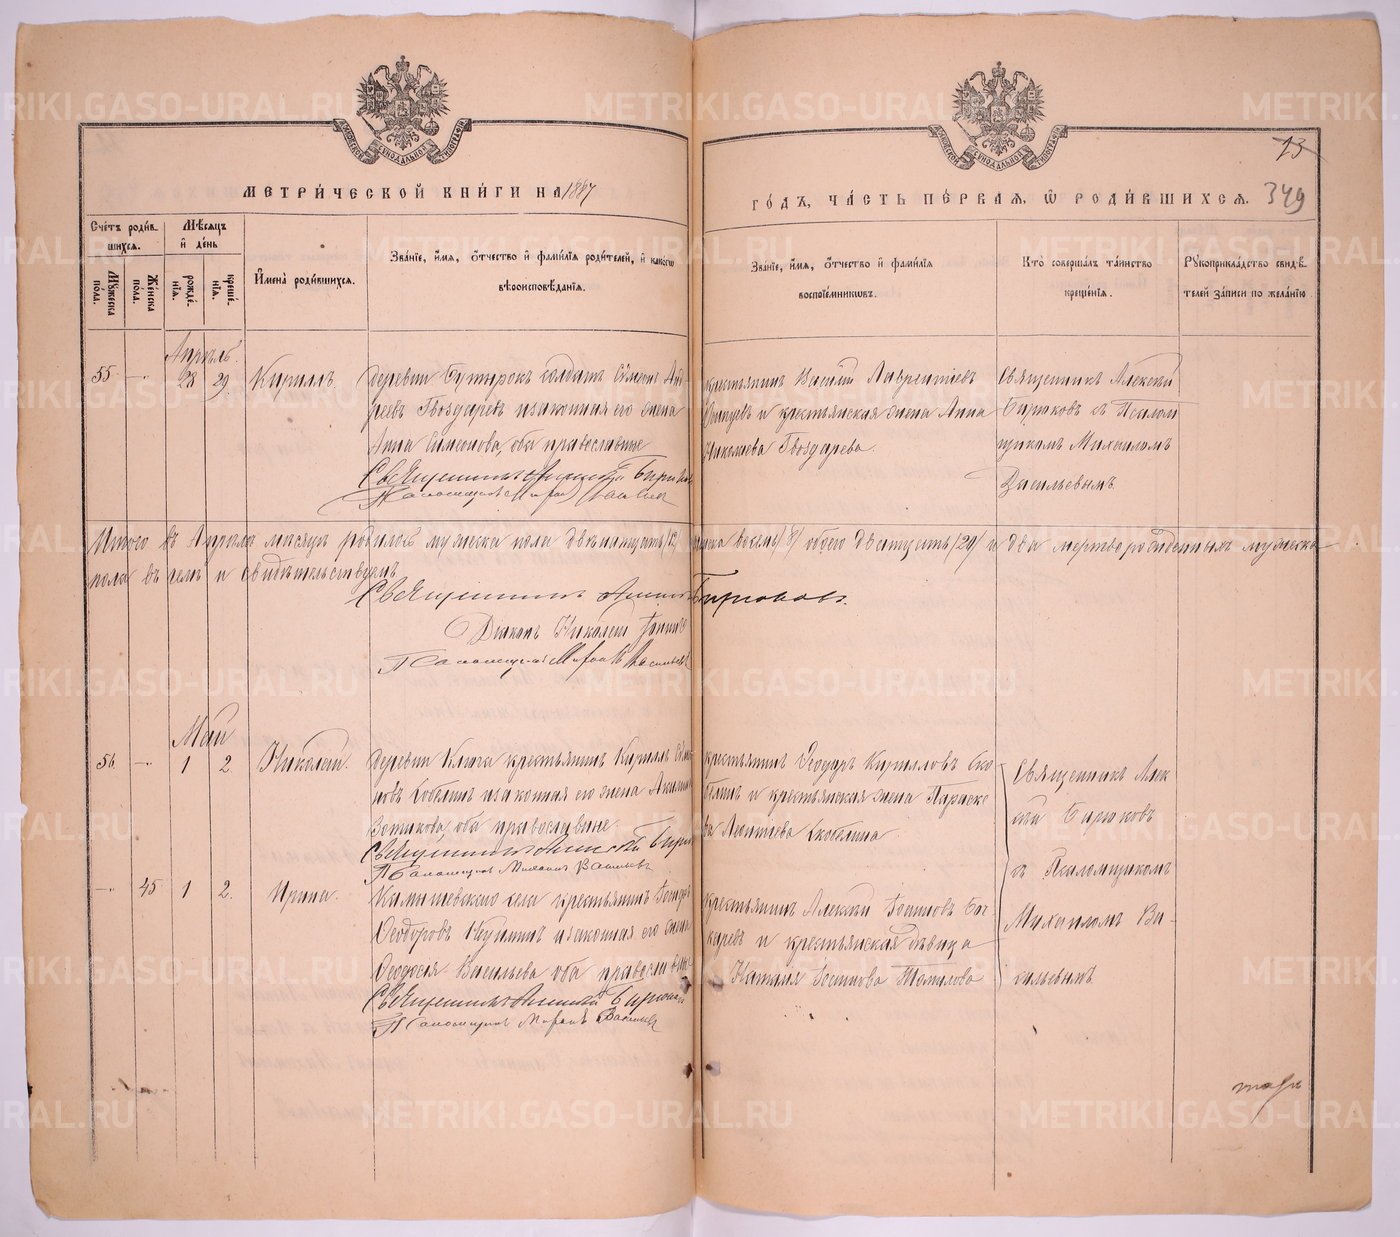 МЕТРИ́ЧЕСКОЙ КНИ́ГИ НА 1887
ГО́ДЪ, ЧА́СТЬ ПЕ́РВАЯ, Ѽ РОДИ́ВШИХСЯ.
23
349
Сче́тъ роди́в-
шихся.
Мꙋ́жеска по́ла.
Же́нска по́ла.
Мѣ́сяцъ
и҆ де́нь
рожде́нїя.
креще́нїя.
И҆мена̀ роди́вшихся.
Зва́нїе, и҆́мя, ѻ҆́тчество и҆ фами́лїѧ роди́телей, и҆ како́гѡ
вѣроисповѣ́данїѧ.
Зва́нїе, и҆́мя, ѻ҆́тчество и҆ фами́лїѧ
воспрїе́мниковъ.
Кто̀ соверша́лъ та́инство
креще́нїѧ.
Рꙋкоприкла́дство свидѣ́-
телей за́писи по жела́нїю
Апрѣль
55 — 28 29 Кириллъ.
деревни Бутырокъ солдатъ Симеонъ Анд-
реевъ Гвоздаревъ и законная его жена
Анна Симеонова, оба православные
Священникъ Алексѣй Бирюковъ
Псаломщикъ Михаилъ Васильевъ
крестьянинъ Василий Лаврентіевъ
и крестьянская жена Анна
Николаева Гвоздарева.
Священникъ Алексѣй
Бирюковъ съ Псалом
щикомъ Михаиломъ
Васильевымъ.
Итого въ Апрѣлѣ мѣсяцѣ родилось мужеска пола двѣнадцать /12/ женска восемь /8/ обоего двадцать /20/ и два мертворожденныхъ мужеска
пола въ чемъ и свидѣтельствуемъ
Священникъ Алексѣй Бирюковъ.
Діаконъ Николай
Псаломщикъ Михаилъ Васильевъ
Май
56. — 1 2 Николай.
деревни Ключа крестьянинъ Кириллъ Симео
новъ Скобелинъ и законная его жена Акилина
Зотикова, оба православные.
Священникъ Алексѣй Бирюковъ
Псаломщикъ Михаилъ Васильевъ
крестьянинъ Ѳеодоръ Кирилловъ Ско
белинъ и крестьянская жена Параске
ва Леонтіева Скобелина.
Священникъ Алек
сѣй Бирюковъ
съ Псаломщикомъ
Михаиломъ Ва-
сильевымъ.
— 45 1 2. Ирина.
Камышевскаго села крестьянинъ
Ѳеодоровъ и законная его жена
Ѳеодосія Васильева оба православные
Священникъ Алексѣй Бирюковъ
Псаломщикъ Михаилъ Васильевъ
крестьянинъ Алексѣй Іосифовъ
и крестьянская дѣвица
Наталія Іосифова Томилова